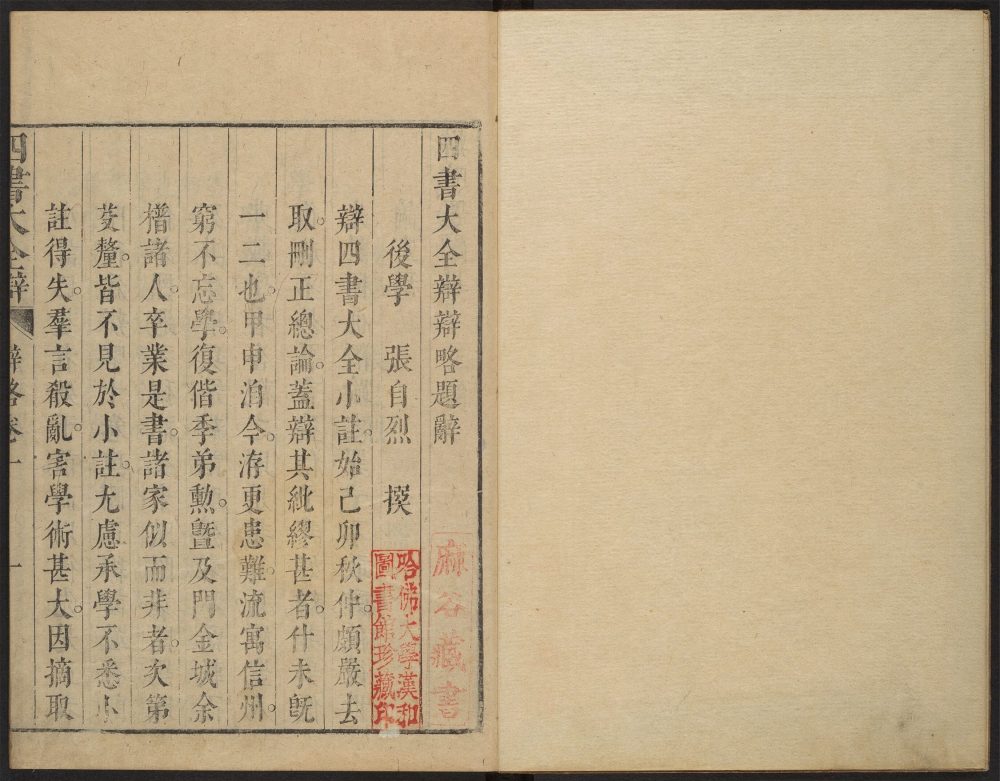 四書大全辯辯略題辭
後學 張自烈 撰
辯四書大全小註。始己卯秋仲。頗嚴去
取。刪正總論。蓋辯其紕繆甚者。什未旣
一二也。甲申洎今。洊更患難。流寓信州。
窮不忘學。復偕季弟勲。曁及門金城余
櫓諸人。卒業是書。諸家似而非者。次第
芟釐。皆不見於小註。尢慮承學不悉小
註得失。羣言殽亂。害學術甚大。因摘取
四書大全辯 辯略卷一 一
麻谷藏書
哈佛大學漢和
圖書館珍藏印